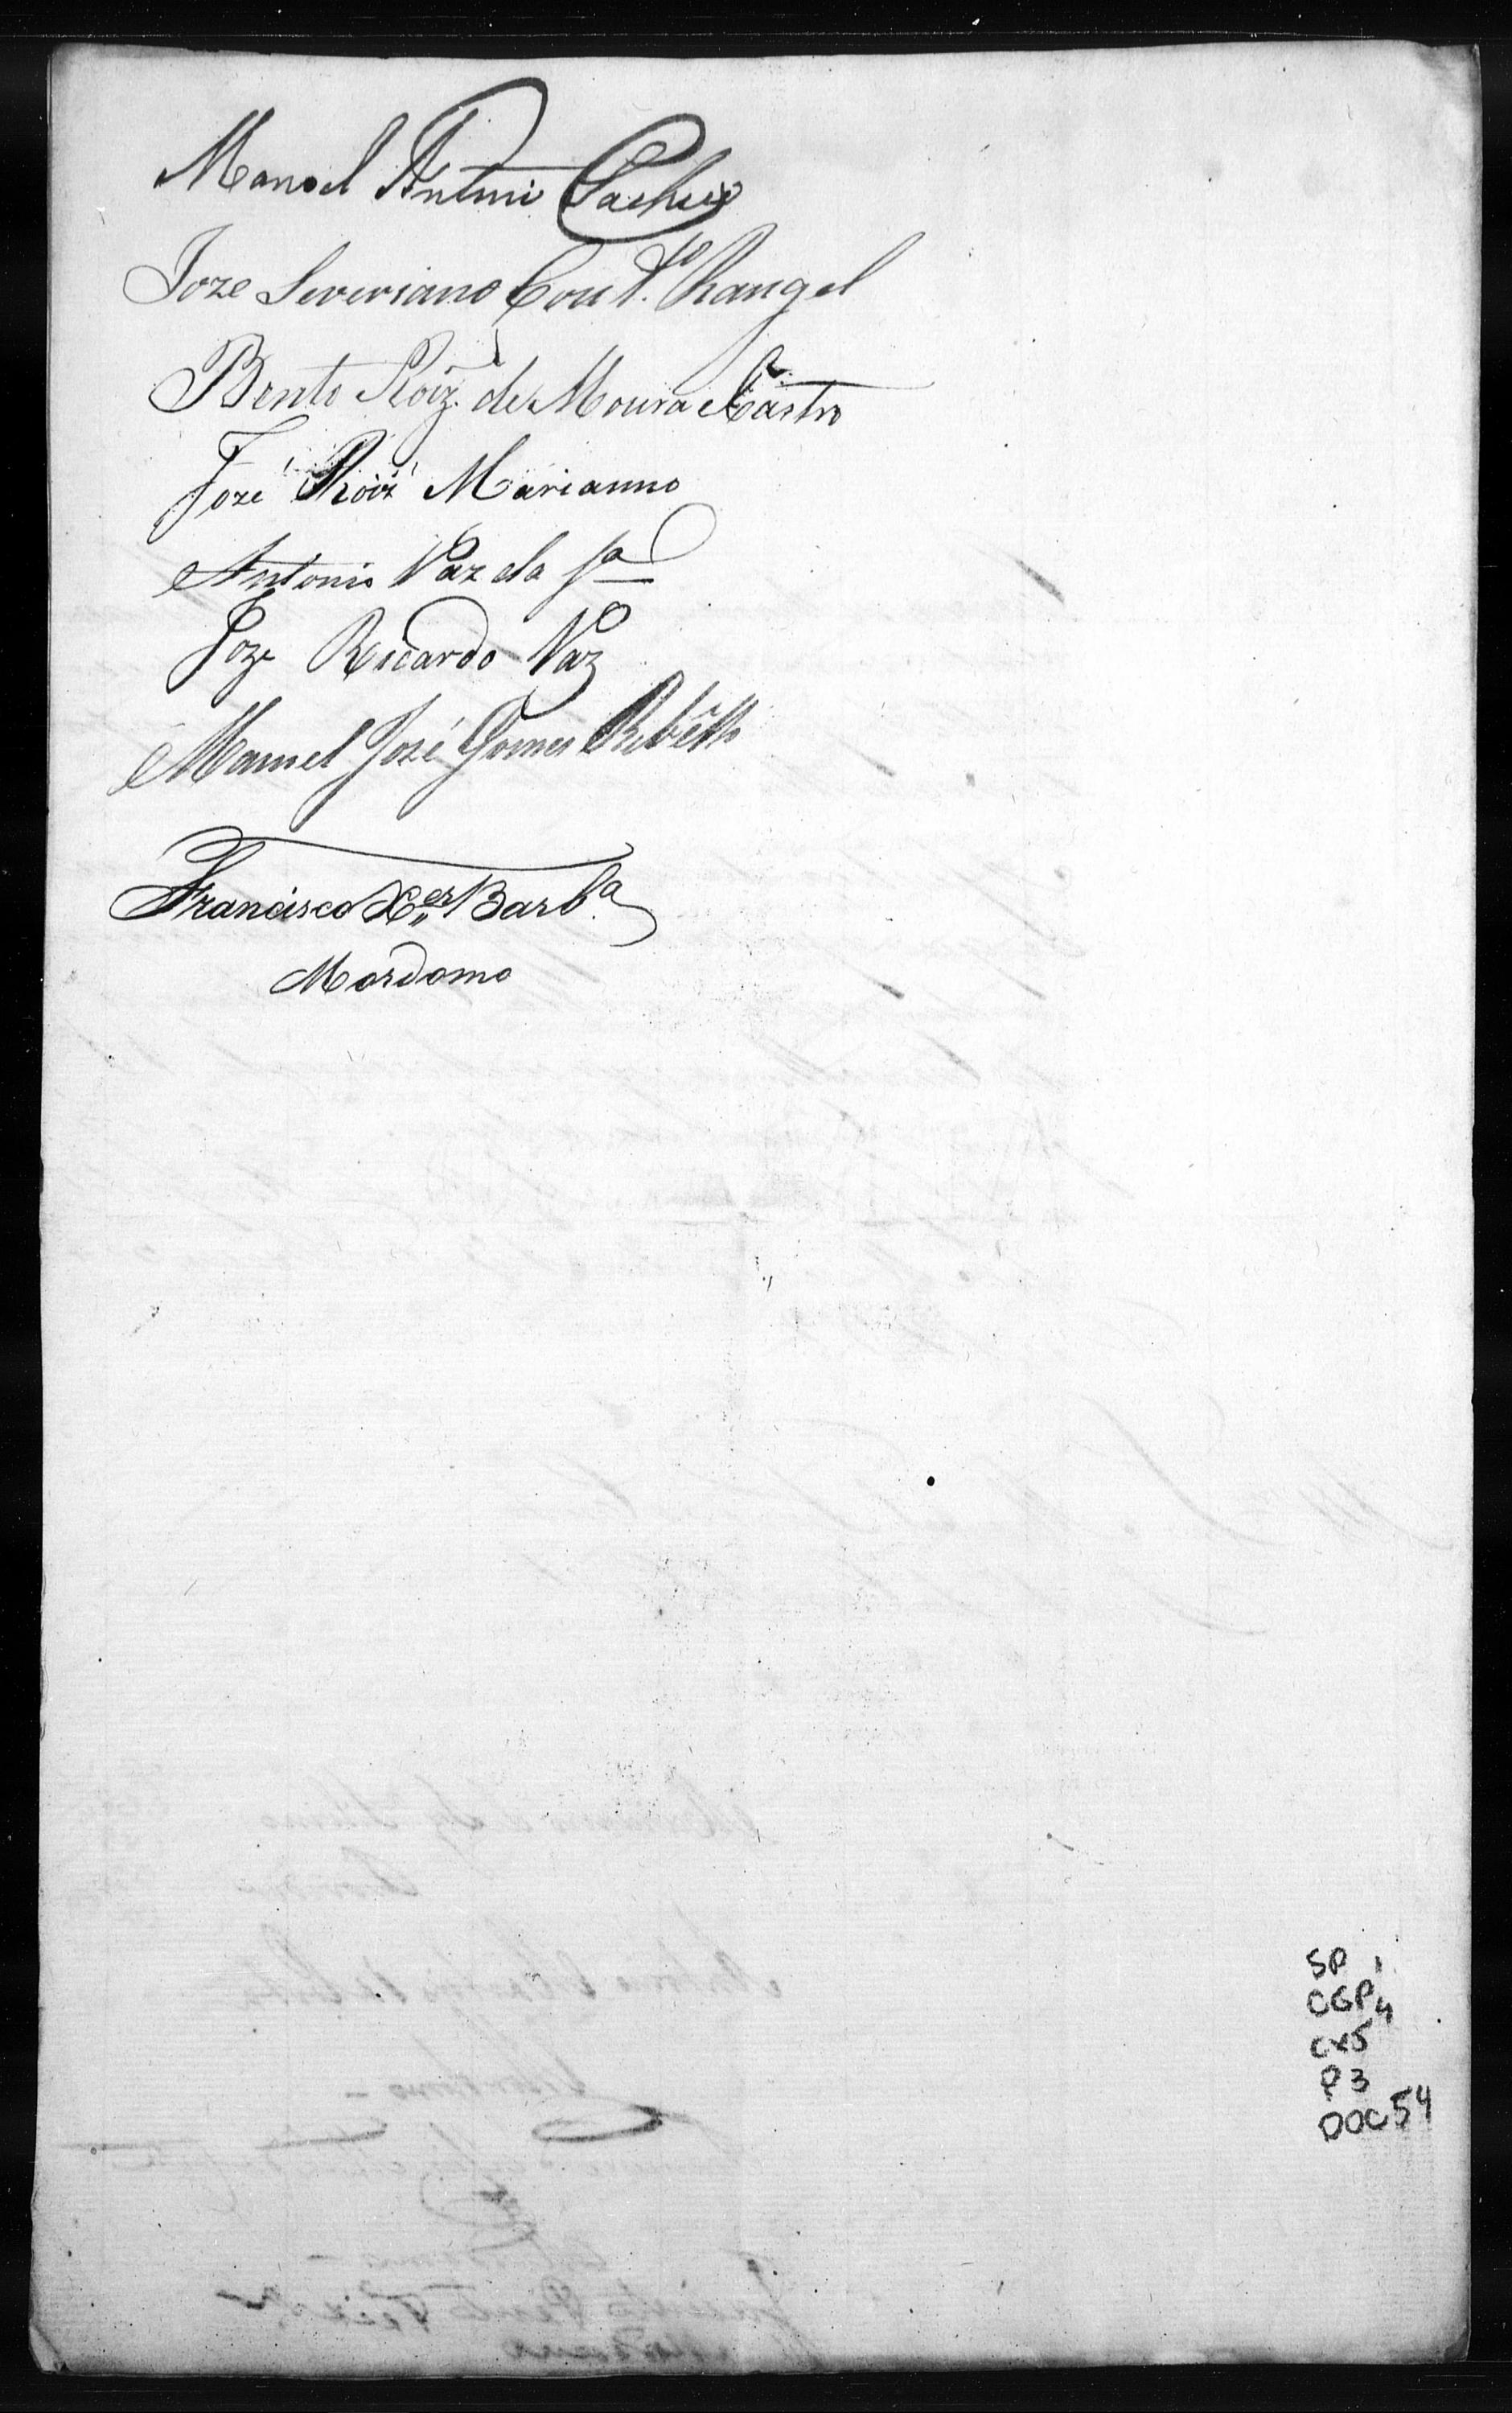 Manoel Antonio Pacheco
Joze Severiano Cout.º Rangel
Bento Roiz de Moura e Castro
José Roiz Marianno
Antonio Vaz da Sª
Joze Ricardo Vaz
Manoel José Gomes Rebêllo
Francisco X.er Barb.ª
Mordomo
SP 1
CGP 4
cx5
P3
DOC 54